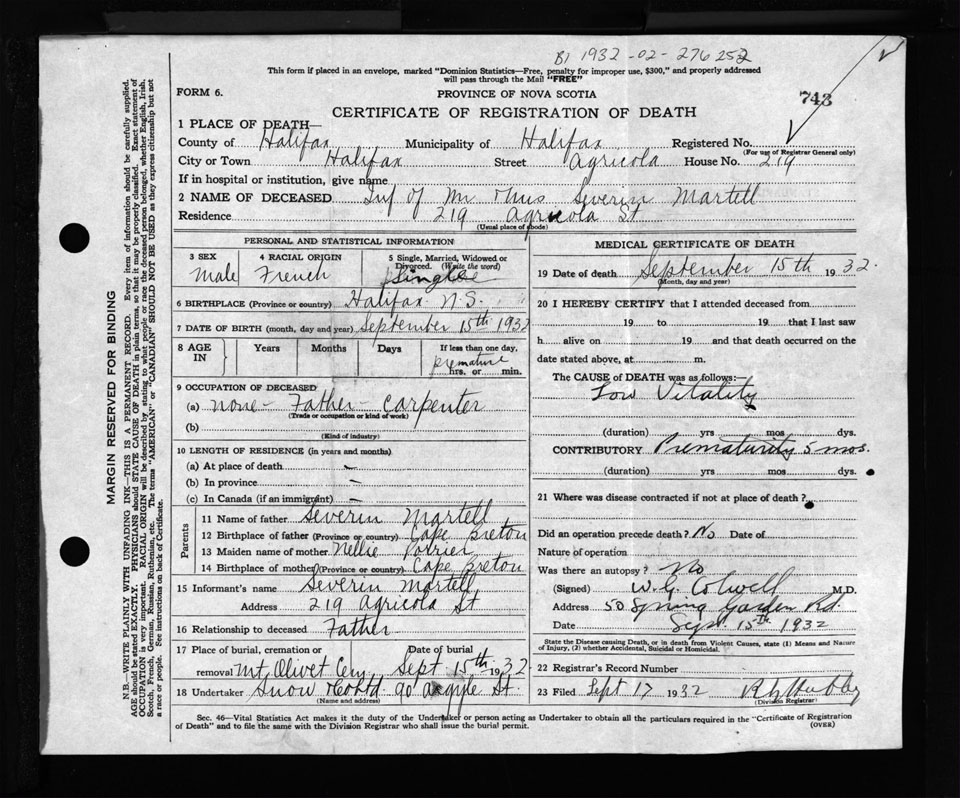 B1 1932 -02- 276252
This form if placed in an envelope, marked "Dominion Statistics—Free, penalty for improper use, $300," and properly addressed
will pass through the Mail "FREE"
FORM 6.
PROVINCE OF NOVA SCOTIA
743
CERTIFICATE OF REGISTRATION OF DEATH
1 PLACE OF DEATH—
County of Halifax Municipality of Halifax Registered No.
(For use of Registrar General only)
City or Town Halifax Street Agricola House No. 219
If in hospital or institution, give name
2 NAME OF DECEASED Inf of Mr Severin Martell
Residence 219 Agricola St
(Usual place of abode)
PERSONAL AND STATISTICAL INFORMATION
3 SEX Male
4 RACIAL ORIGIN French
5 Single, Married, Widowed or
Divorced. (Write the word)
Single
6 BIRTHPLACE (Province or country) Halifax N.S.
7 DATE OF BIRTH (month, day and year) September 15th 1932
8 AGE IN Years Months Days If less than one day,
premature
hrs. or min.
9 OCCUPATION OF DECEASED
(a) none - Father - carpenter
(Trade or occupation or kind of work)
(b)
(Kind of industry)
10 LENGTH OF RESIDENCE (in years and months)
(a) At place of death —
(b) In province —
(c) In Canada (if an immigrant) —
Parents
11 Name of father Severin Martell
12 Birthplace of father (Province or country) Cape Breton
13 Maiden name of mother Nellie Poirier
14 Birthplace of mother (Province or country) Cape Breton
15 Informant's name Severin Martell
Address 219 Agricola St
16 Relationship to deceased Father
17 Place of burial, cremation or Date of burial
removal Mt Olivet Cem Sept 15th 1932
18 Undertaker Snow & Co Ltd 90 Argyle St.
(Name and address)
MEDICAL CERTIFICATE OF DEATH
19 Date of death September 15th 1932.
(Month, day and year)
20 I HEREBY CERTIFY that I attended deceased from
19 to 19 that I last saw
h alive on 19 and that death occurred on the
date stated above, at m.
The CAUSE of DEATH was as follows:—
Low Vitality
(duration) yrs mos dys.
CONTRIBUTORY Prematurity 5 mos.
(duration) yrs mos dys.
21 Where was disease contracted if not at place of death?
Did an operation precede death? No Date of
Nature of operation
Was there an autopsy? No
(Signed) W.G. Colwell M.D.
Address 50 Spring Garden Rd.
Date Sept. 15th 1932
State the Disease causing Death, or in death from Violent Causes, state (1) Means and Nature
of Injury, (2) whether Accidental, Suicidal or Homicidal.
22 Registrar's Record Number
23 Filed Sept 17 1932
(Division Registrar)
Sec. 46—Vital Statistics Act makes it the duty of the Undertaker or person acting as Undertaker to obtain all the particulars required in the "Certificate of Registration
of Death" and to file the same with the Division Registrar who shall issue the burial permit.
(OVER)
MARGIN RESERVED FOR BINDING
N.B.—WRITE PLAINLY WITH UNFADING INK—THIS IS A PERMANENT RECORD. Every item of information should be carefully supplied.
AGE should be stated EXACTLY. PHYSICIANS should STATE CAUSE OF DEATH in plain terms, so that it may be properly classified. Exact statement of
OCCUPATION is very important. RACIAL ORIGIN will be described by stating to what people or race the deceased person belonged, whether English, Irish,
Scotch, French, German, Russian, Ruthenian, etc. The terms "AMERICAN" or "CANADIAN" SHOULD NOT BE USED as they express citizenship but not
a race or people. See instructions on back of Certificate.